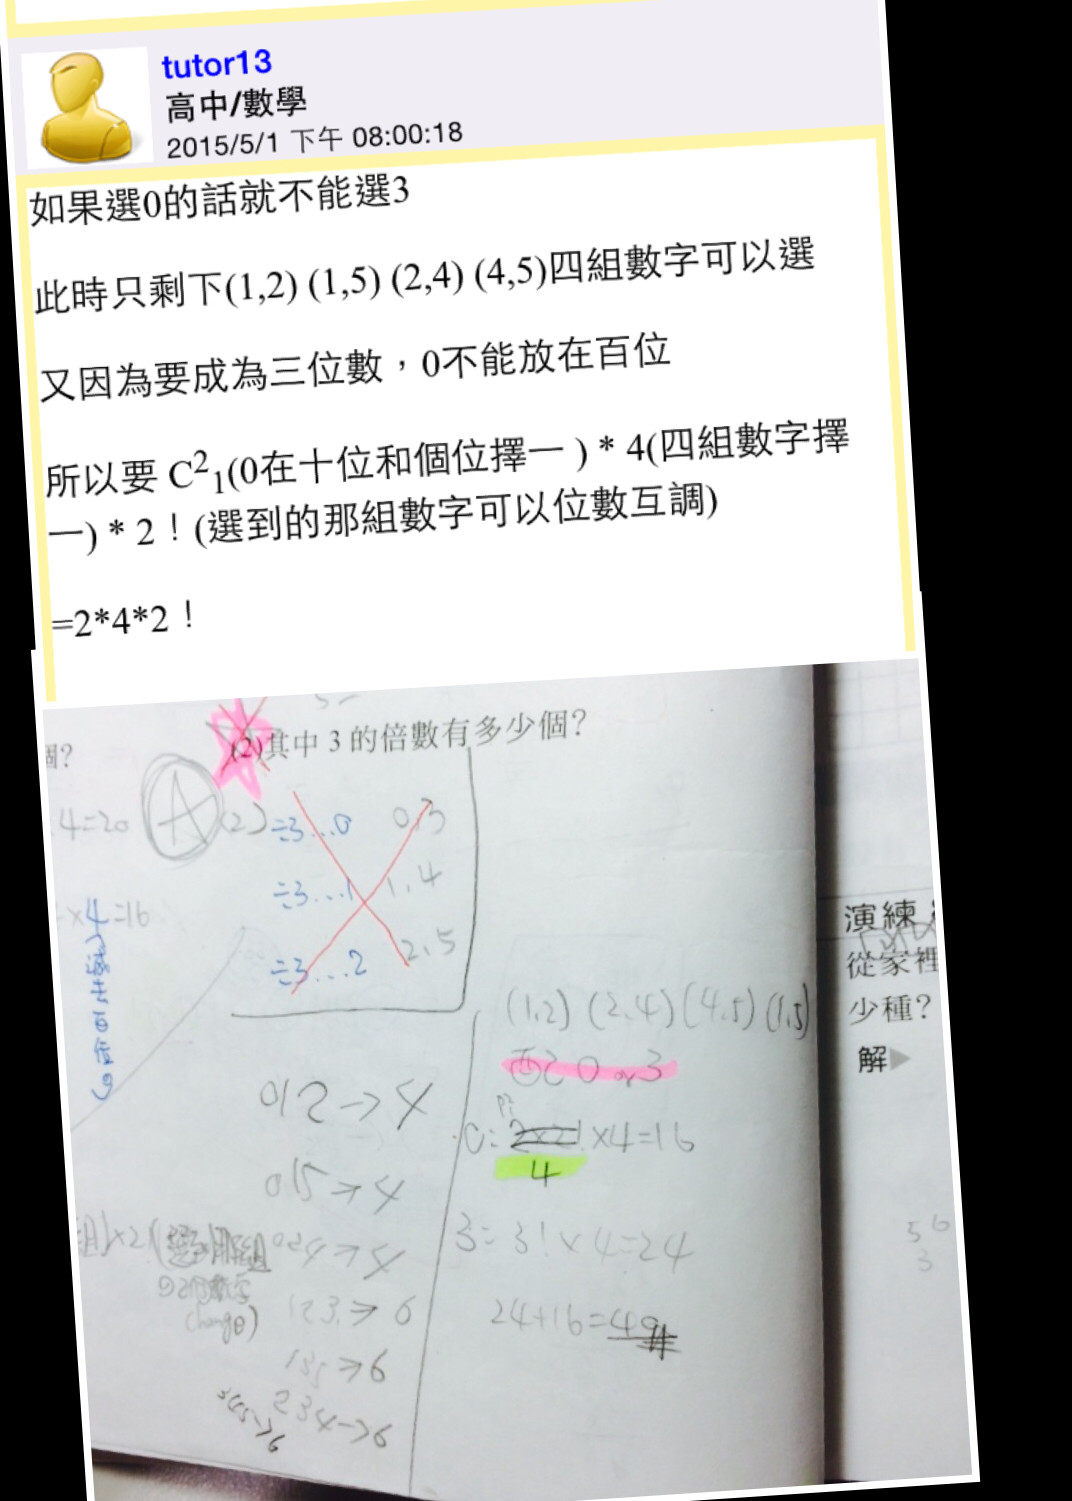 tutor13
高中/數學
2015/5/1 下午 08:00:18
如果選0的話就不能選3
此時只剩下(1,2) (1,5) (2,4) (4,5)四組數字可以選
又因為要成為三位數，0不能放在百位
所以要 C²₁(0在十位和個位擇一 ) * 4(四組數字擇
一) * 2！(選到的那組數字可以位數互調)
=2*4*2！
個?
(2)其中 3 的倍數有多少個?
4=20
A
(2)
÷3...0 0,3
÷3...1 1,4
÷3...2 2,5
×4=16
減去百位0
(1,2) (2,4) (4,5) (1,5)
配0 or 3
012→4
0: 2×2! ×4=16
4
015→4
024→4
3: 3!×4=24
組)×2(
change)
123→6
24+16=40#
135→6
234→6
345→6
演練
從家裡
少種?
解
5 6
3